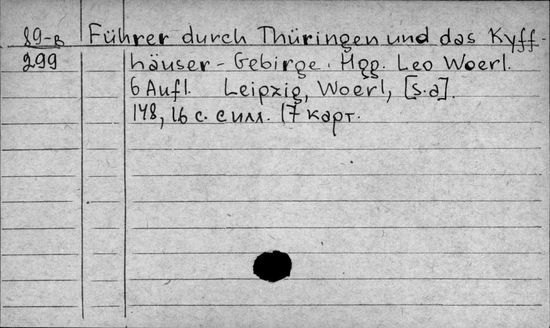 89-в Führer durch Thüringen und das Kyff-
299 häuser-Gebirge. Hgg. Leo Woerl.
6 Aufl. Leipzig, Woerl, [s.a].
148, 16 с. с илл. 17 карт.